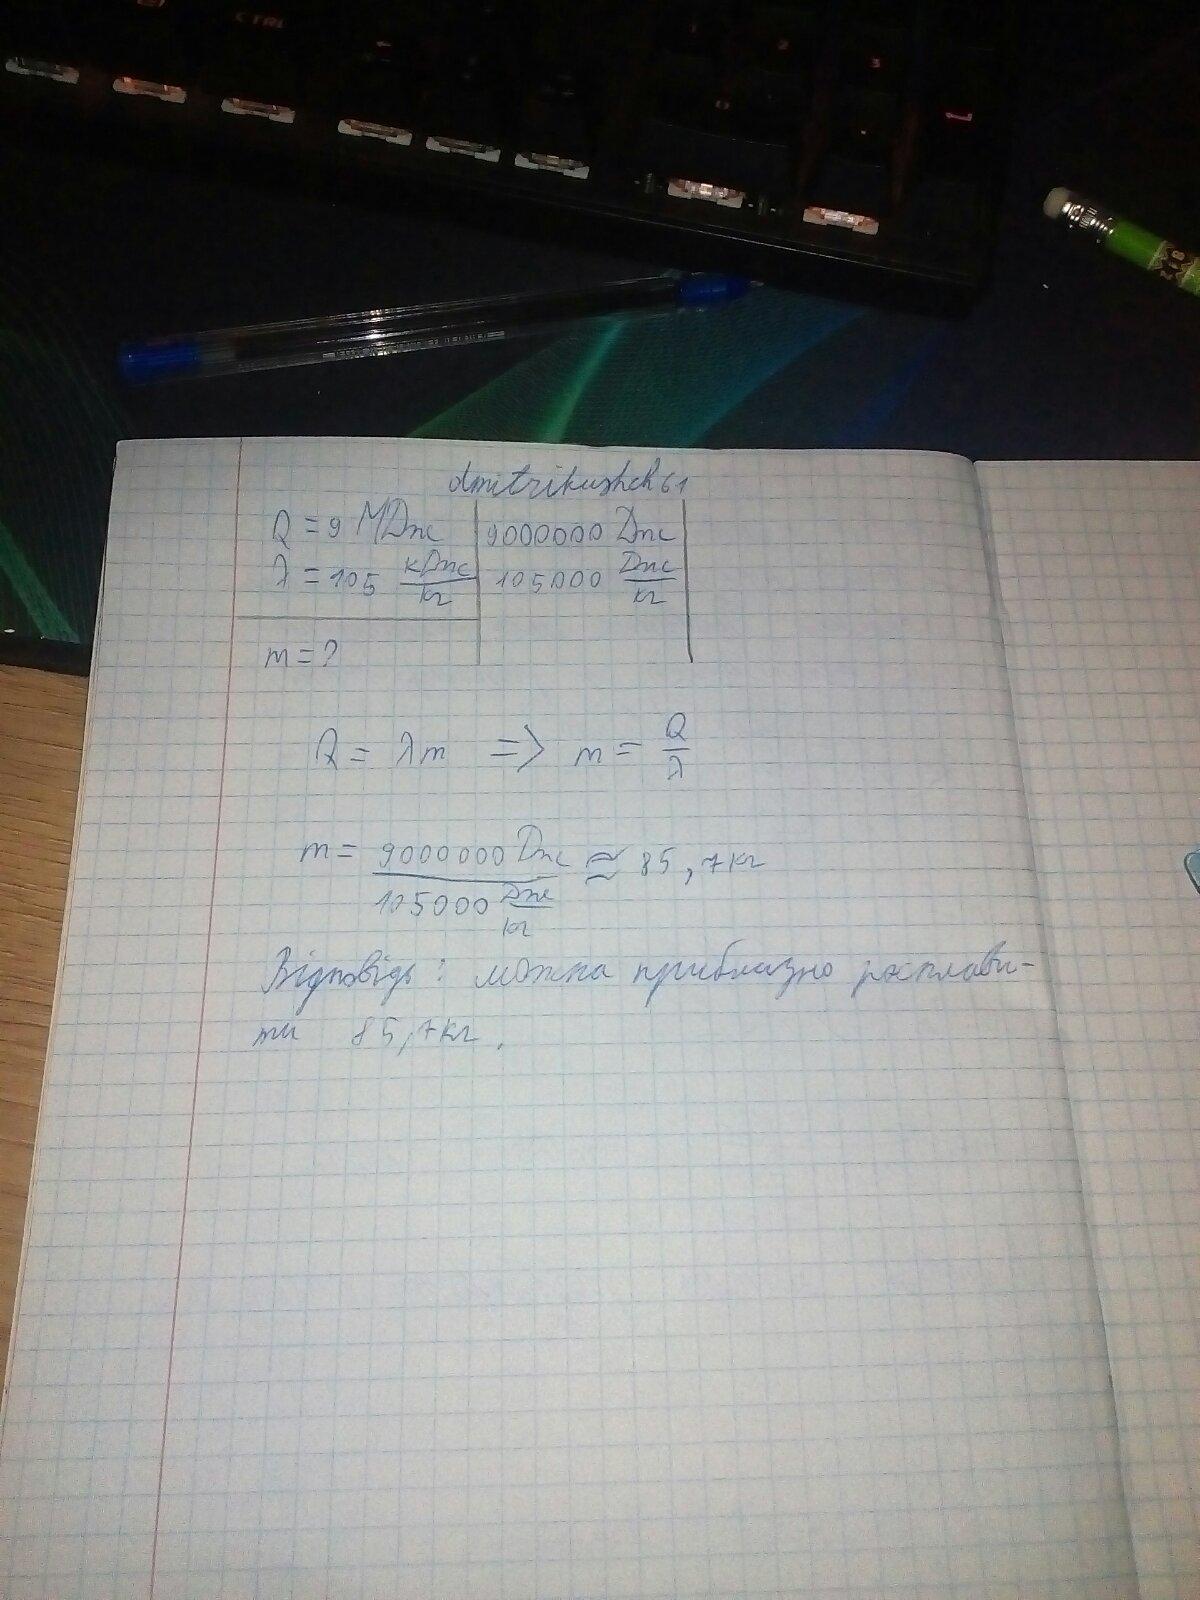 dmitrikushch61
Q = 9 МДж | 9000000 Дж
λ = 105 кДж/кг | 105000 Дж/кг
m = ?
Q = λm => m = Q/λ
m = 9000000 Дж / 105000 Дж/кг ≈ 85,7кг
Відповідь: можна приблизно розплави-
ти 85,7кг.